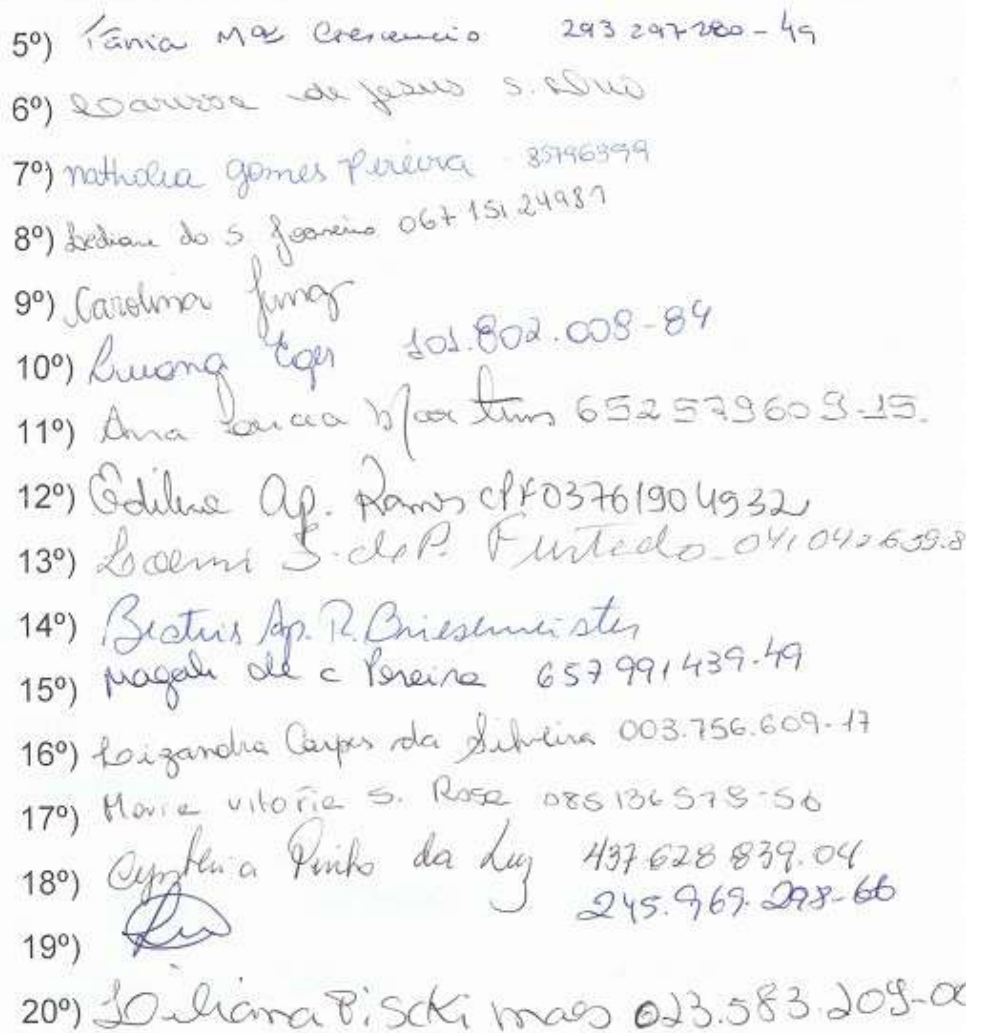 5º) Tânia Mª Crescencio 293 297 280-49
6º) Larissa de Jesus S.
7º) Nathalia Gomes Pereira 85796399
8º) do S. 067 151 24981
9º) Carolina Jung
10º) Luuana Eger 101.802.008-84
11º) Ana Lucia Martins 652579609-15.
12º) Edilne Ap. Ramos CPF03761904932
13º) S. de P. Furtado 041042639.8
14º) Beatris Ap. R. Briesemeister
15º) Magali de C Pereira 657 991439-49
16º) Lizandra Carpes da Silveira 003.756.609-17
17º) Maria Vitoria S. Rosa 085136579-56
18º) Cynthia Pinho da Luz 437 628 839.04
19º) 245.969.298-66
20º) Piscki maes 023.583.209-0